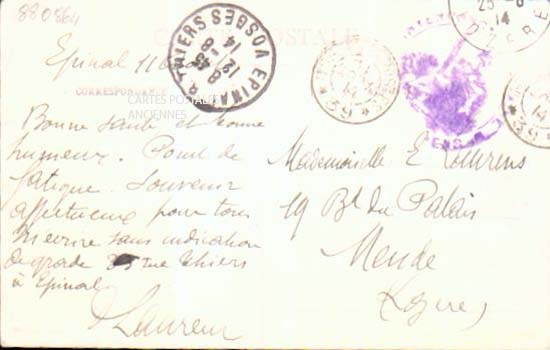 880864
CARTE POSTALE
Epinal 11 Août
CORRESPONDANCE
CARTES POSTALES
ANCIENNES
Bonne santé et bonne
humeur. Point de
fatigue. Souvenir
affectueux pour tous
M'écrire sans indication
de grade 35 rue Thiers
à Epinal
Laurent
Mademoiselle E.
19 Bd du Palais
Mende
(Lozère)
EPINAL R. THIERS VOSGES
8 45
12 - 8
14
25 - 8
14